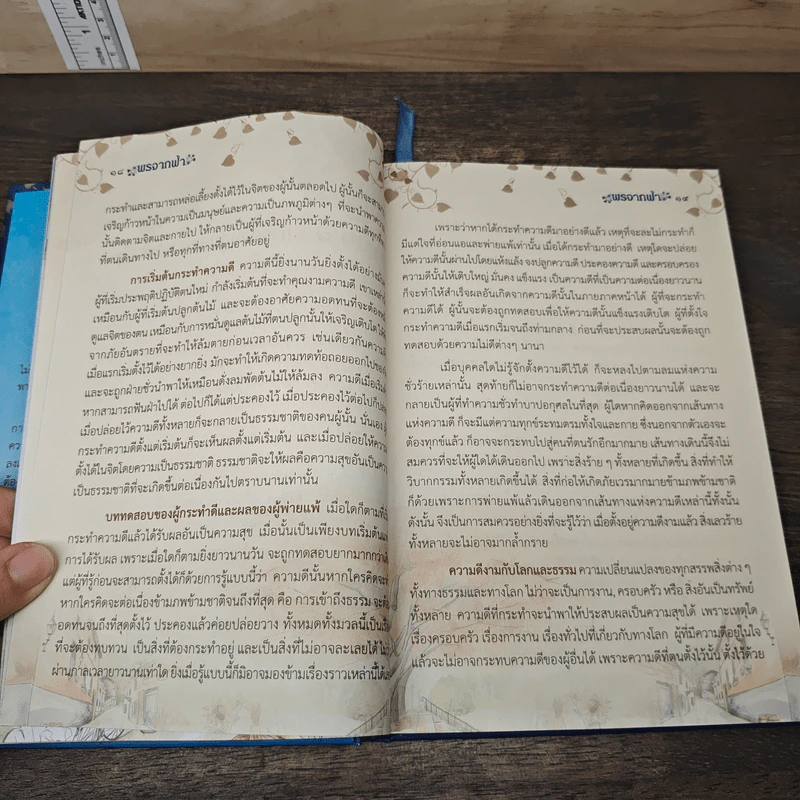 ๑๘ พรจากฟ้า
กระทำและสามารถหล่อเลี้ยงตั้งได้ไว้ในจิตของผู้นั้นตลอดไป ผู้นั้นก็จะสามารถ
เจริญก้าวหน้าในความเป็นมนุษย์และความเป็นภพภูมิต่างๆ ที่จะนำพาความ
นั้นติดตามจิตและกายไป ให้กลายเป็นผู้ที่เจริญก้าวหน้าด้วยความดีทุกที่
ที่ตนเดินทางไป หรือทุกที่ทางที่ตนอาศัยอยู่
การเริ่มต้นกระทำความดี ความดีนี้ยิ่งนานวันยิ่งตั้งได้อย่าง
ผู้ที่เริ่มประพฤติปฏิบัติตนใหม่ กำลังเริ่มต้นที่จะทำคุณงามความดี เขาเหล่า
เหมือนกับผู้ที่เริ่มต้นปลูกต้นไม้ และจะต้องอาศัยความอดทนที่จะต้อง
ดูแลจิตของตน เหมือนกับการหมั่นดูแลต้นไม้ที่ตนปลูกนั้นให้เจริญเติบโต
จากภัยอันตรายที่จะทำให้ล้มตายก่อนเวลาอันควร เช่นเดียวกันความดี
เมื่อแรกเริ่มตั้งไว้ได้อย่างยากยิ่ง มักจะทำให้เกิดความท้อถอยออกไป
และจะถูกฝ่ายชั่วนำพาให้เหมือนดั่งลมพัดต้นไม้ให้ล้มลง ความดีเมื่อเริ่ม
หากสามารถฟันฝ่าไปได้ ต่อไปก็ได้แต่ประคองไว้ เมื่อประคองไว้ต่อไป
เมื่อปล่อยไว้ความดีทั้งหลายก็จะกลายเป็นธรรมชาติของคนผู้นั้น นั่นเอง
กระทำความดีตั้งแต่เริ่มต้นก็จะเห็นผลตั้งแต่เริ่มต้น และเมื่อปล่อยให้ความ
ตั้งได้ในจิตโดยความเป็นธรรมชาติ ธรรมชาติจะให้ผลคือความสุขอันเป็น
เป็นธรรมชาติที่จะเกิดขึ้นต่อเนื่องกันไปตราบนานเท่านั้น
บททดสอบของผู้กระทำดีและผลของผู้พ่ายแพ้ เมื่อใดก็ตามที่
กระทำความดีแล้วได้รับผลอันเป็นความสุข เมื่อนั้นเป็นเพียงบทเริ่มต้น
การได้รับผล เพราะเมื่อใดก็ตามยิ่งยาวนานวัน จะถูกทดสอบยากมากกว่า
แต่ผู้ที่รู้ก่อนจะสามารถตั้งได้ก็ด้วยการรู้แบบนี้ว่า ความดีนั้นหากใครคิดจะ
หากใครคิดจะต่อเนื่องข้ามภพข้ามชาติจนถึงที่สุด คือ การเข้าถึงธรรม จะต้อง
อดทนจนถึงที่สุดตั้งไว้ ประคองแล้วค่อยปล่อยวาง ทั้งหมดทั้งมวลนี้เป็น
ที่จะต้องทบทวน เป็นสิ่งที่ต้องกระทำอยู่ และเป็นสิ่งที่ไม่อาจละเลยได้
ผ่านกาลเวลายาวนานเท่าใด ยิ่งเมื่อรู้แบบนี้ก็มิอาจมองข้ามเรื่องราวเหล่านี้ได้
พรจากฟ้า ๑๙
เพราะว่าหากได้กระทำความดีมาอย่างดีแล้ว เหตุที่จะละไม่กระทำก็
มีแต่ใจที่อ่อนแอและพ่ายแพ้เท่านั้น เมื่อได้กระทำมาอย่างดี เหตุใดจะปล่อย
ให้ความดีนั้นผ่านไปโดยแห้งแล้ง จงปลูกความดี ประคองความดี และครอบครอง
ความดีนั้นให้เติบใหญ่ มั่นคง แข็งแรง เป็นความดีที่เป็นความต่อเนื่องยาวนาน
ก็จะทำให้สำเร็จผลอันเกิดจากความดีนั้นในภายภาคหน้าได้ ผู้ที่จะกระทำ
ความดีได้ ผู้นั้นจะต้องถูกทดสอบเพื่อให้ความดีนั้นแข็งแรงเติบโต ผู้ที่ตั้งใจ
กระทำความดีเมื่อแรกเริ่มจนถึงท่ามกลาง ก่อนที่จะประสบผลนั้นจะต้องถูก
ทดสอบด้วยความไม่ดีต่างๆ นานา
เมื่อบุคคลใดไม่รู้จักตั้งความดีไว้ได้ ก็จะหลงไปตามลมแห่งความ
ชั่วร้ายเหล่านั้น สุดท้ายก็ไม่อาจกระทำความดีต่อเนื่องยาวนานได้ และจะ
กลายเป็นผู้ที่ทำความชั่วทำบาปอกุศลในที่สุด ผู้ใดหากคิดออกจากเส้นทาง
แห่งความดี ก็จะมีแต่ความทุกข์ระทมตรมทั้งใจและกาย ซึ่งนอกจากตัวเองจะ
ต้องทุกข์แล้ว ก็อาจจะกระทบไปสู่คนที่ตนรักอีกมากมาย เส้นทางเดินนี้จึงไม่
สมควรที่จะให้ผู้ใดได้เดินออกไป เพราะสิ่งร้าย ๆ ทั้งหลายที่เกิดขึ้น สิ่งที่ทำให้
วิบากกรรมทั้งหลายเกิดขึ้นได้ สิ่งที่ก่อให้เกิดภัยเวรมากมายข้ามภพข้ามชาติ
ก็ด้วยเพราะการพ่ายแพ้แล้วเดินออกจากเส้นทางแห่งความดีเหล่านี้ทั้งนั้น
ดังนั้น จึงเป็นการสมควรอย่างยิ่งที่จะรู้ไว้ว่า เมื่อตั้งอยู่ความดีงามแล้ว สิ่งเลวร้าย
ทั้งหลายจะไม่อาจมากล้ำกราย
ความดีงามกับโลกและธรรม ความเปลี่ยนแปลงของทุกสรรพสิ่งต่าง ๆ
ทั้งทางธรรมและทางโลก ไม่ว่าจะเป็นการงาน, ครอบครัว หรือ สิ่งอันเป็นทรัพย์
ทั้งหลาย ความดีที่กระทำจะนำพาให้ประสบผลเป็นความสุขได้ เพราะเหตุใด
เรื่องครอบครัว เรื่องการงาน เรื่องทั่วไปที่เกี่ยวกับทางโลก ผู้ที่มีความดีอยู่ในใจ
แล้วจะไม่อาจกระทบความดีของผู้อื่นได้ เพราะความดีที่ตนตั้งไว้นั้น ตั้งไว้ด้วย